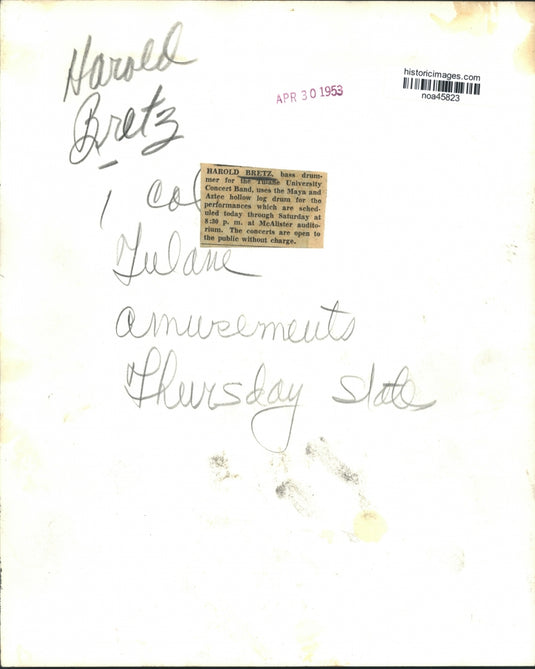 Harold
Bretz
APR 30 1953
historicimages.com
noa45823
1 col
HAROLD BRETZ, bass drum-
mer for the Tulane University
Concert Band, uses the Maya and
Aztec hollow log drum for the
performances which are sched-
uled today through Saturday at
8:30 p. m. at McAlister audito-
rium. The concerts are open to
the public without charge.
Tulane
amusements
Thursday state